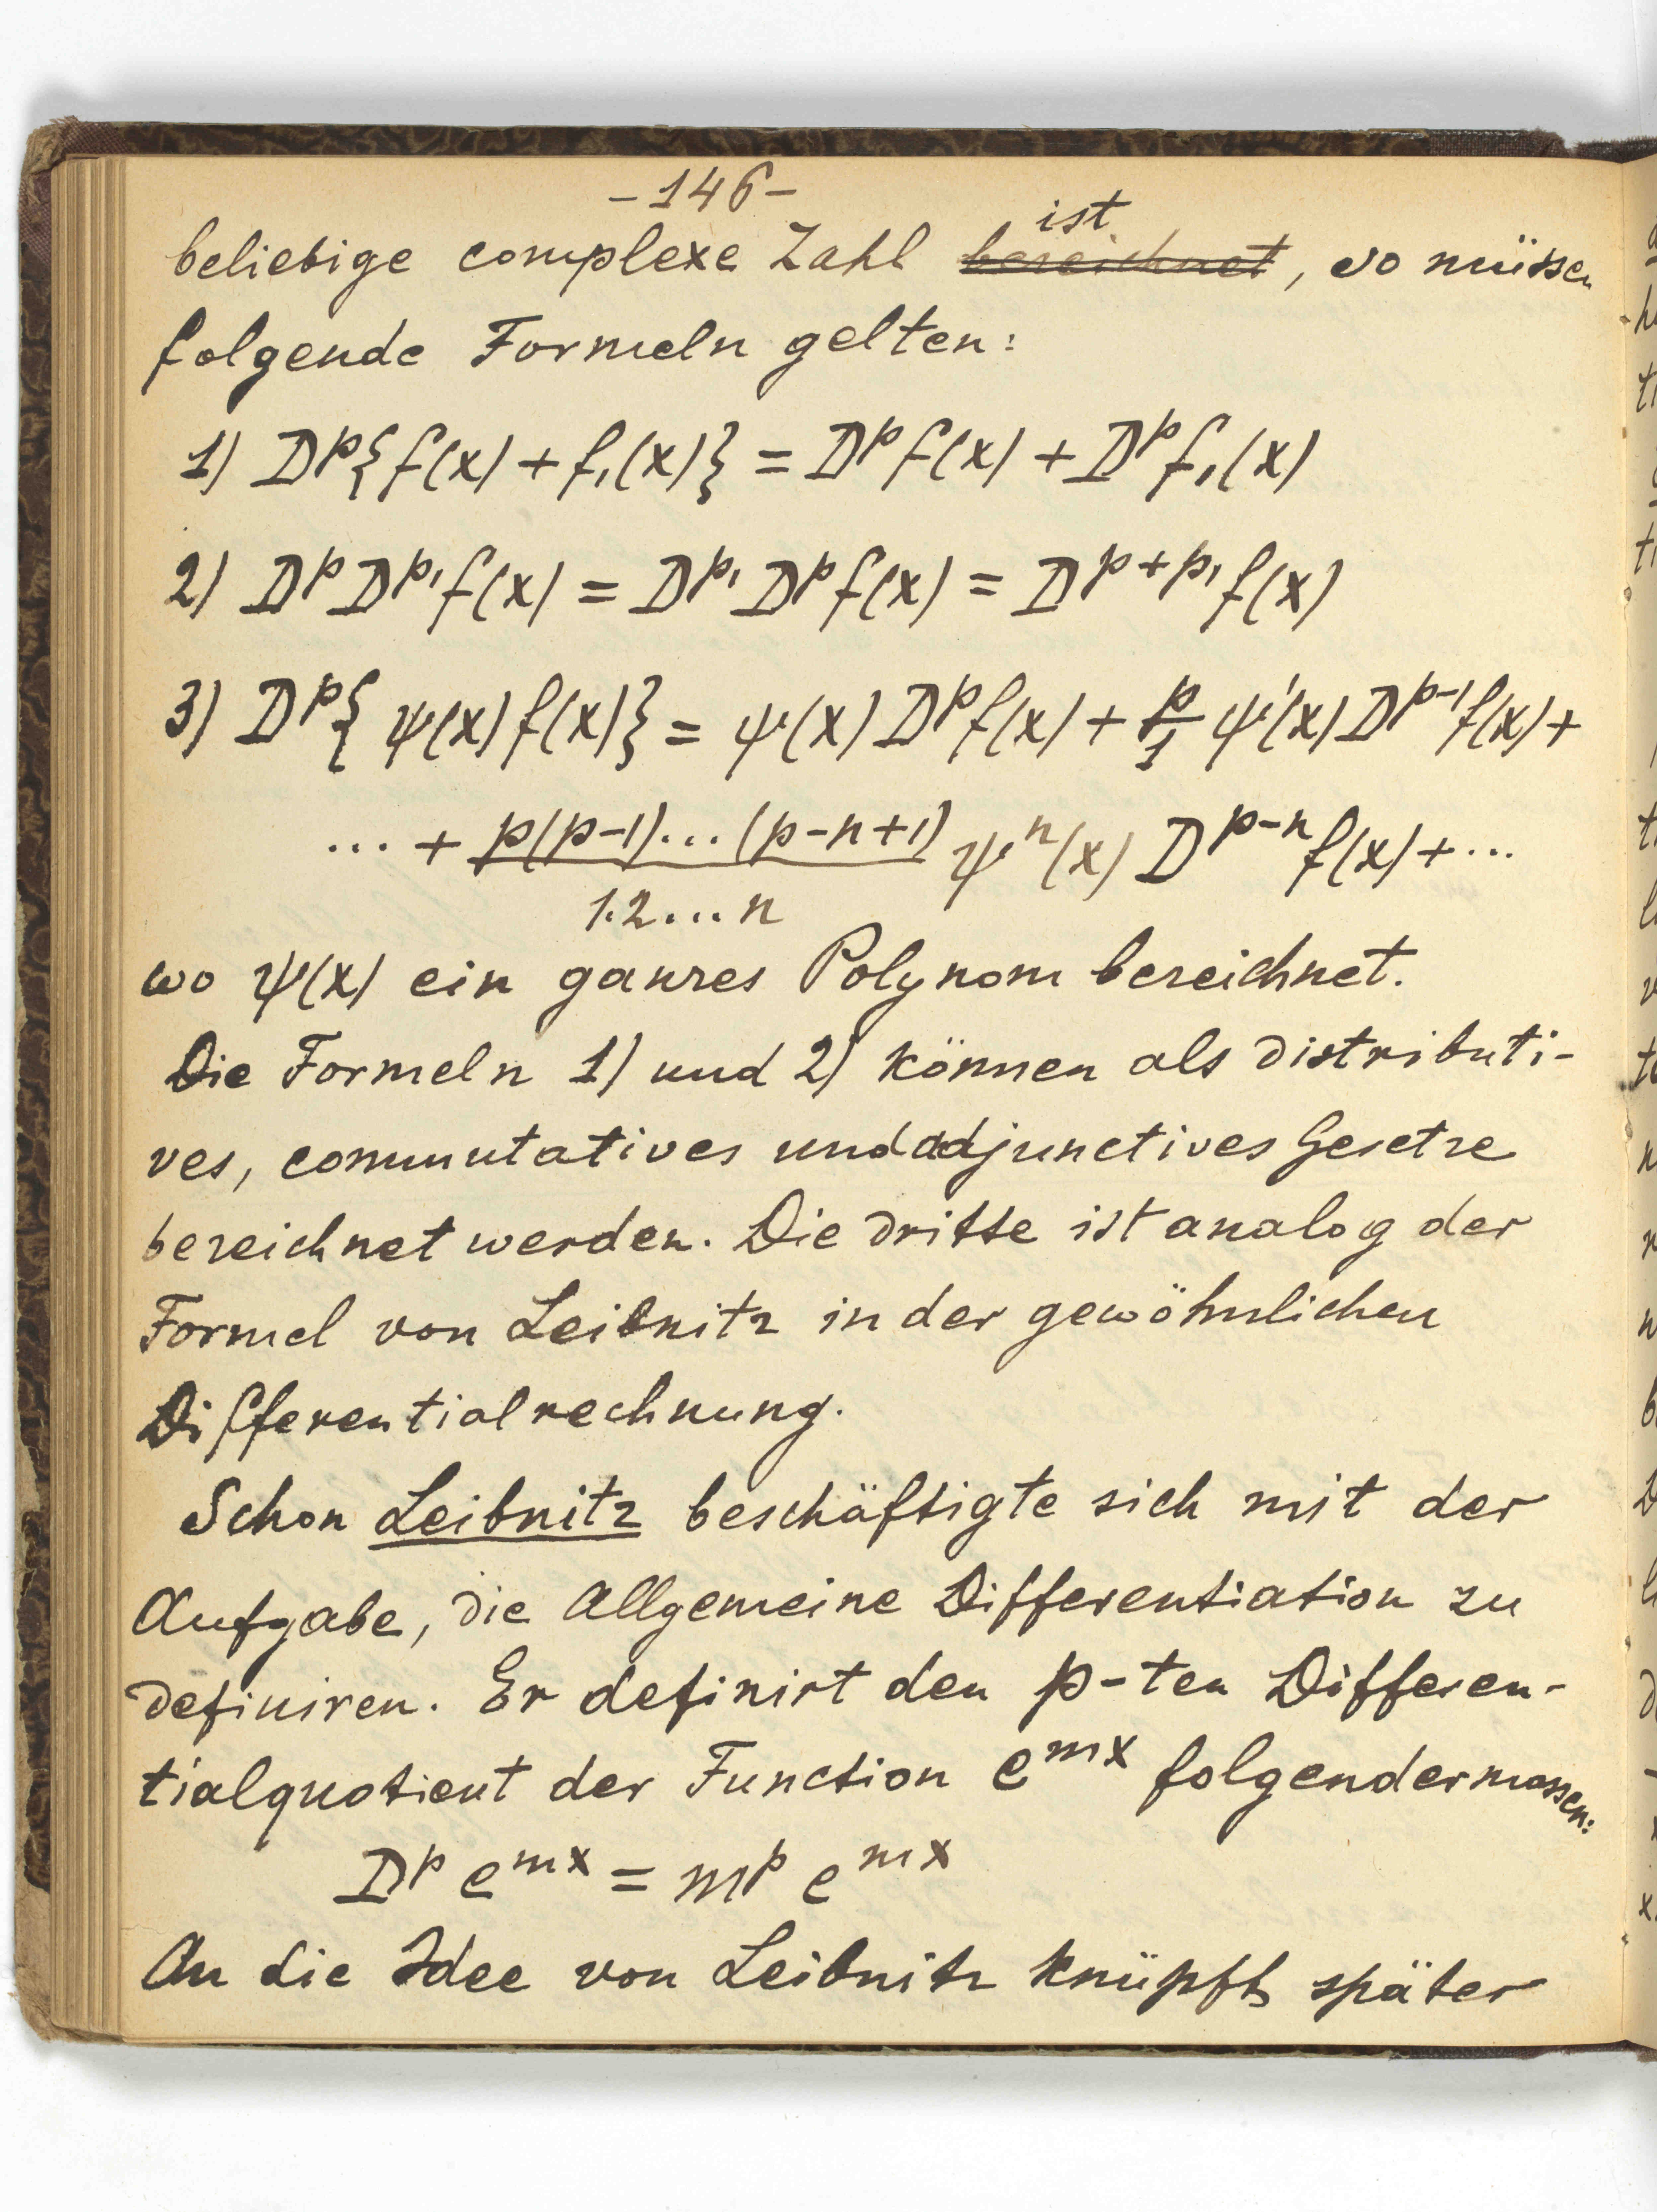 -146-
beliebige complexe Zahl ~~bezeichnet~~ ist, so müssen
folgende Formeln gelten:
1) D^p{f(x) + f₁(x)} = D^p f(x) + D^p f₁(x)
2) D^p D^p₁ f(x) = D^p₁ D^p f(x) = D^(p+p₁) f(x)
3) D^p{ψ(x) f(x)} = ψ(x) D^p f(x) + p/1 ψ'(x) D^(p-1) f(x) +
... + p(p-1)...(p-n+1)/1.2...n ψ^n(x) D^(p-n) f(x) + ...
wo ψ(x) ein ganzes Polynom bezeichnet.
Die Formeln 1) und 2) können als distributi-
ves, commutatives und adjunctives Gesetze
bezeichnet werden. Die dritte ist analog der
Formel von Leibnitz in der gewöhnlichen
Differentialrechnung.
Schon Leibnitz beschäftigte sich mit der
Aufgabe, die Allgemeine Differentiation zu
definiren. Er definirt den p-ten Differen-
tialquotient der Function e^mx folgendermassen:
D^p e^mx = m^p e^mx
An die Idee von Leibnitz knüpft später